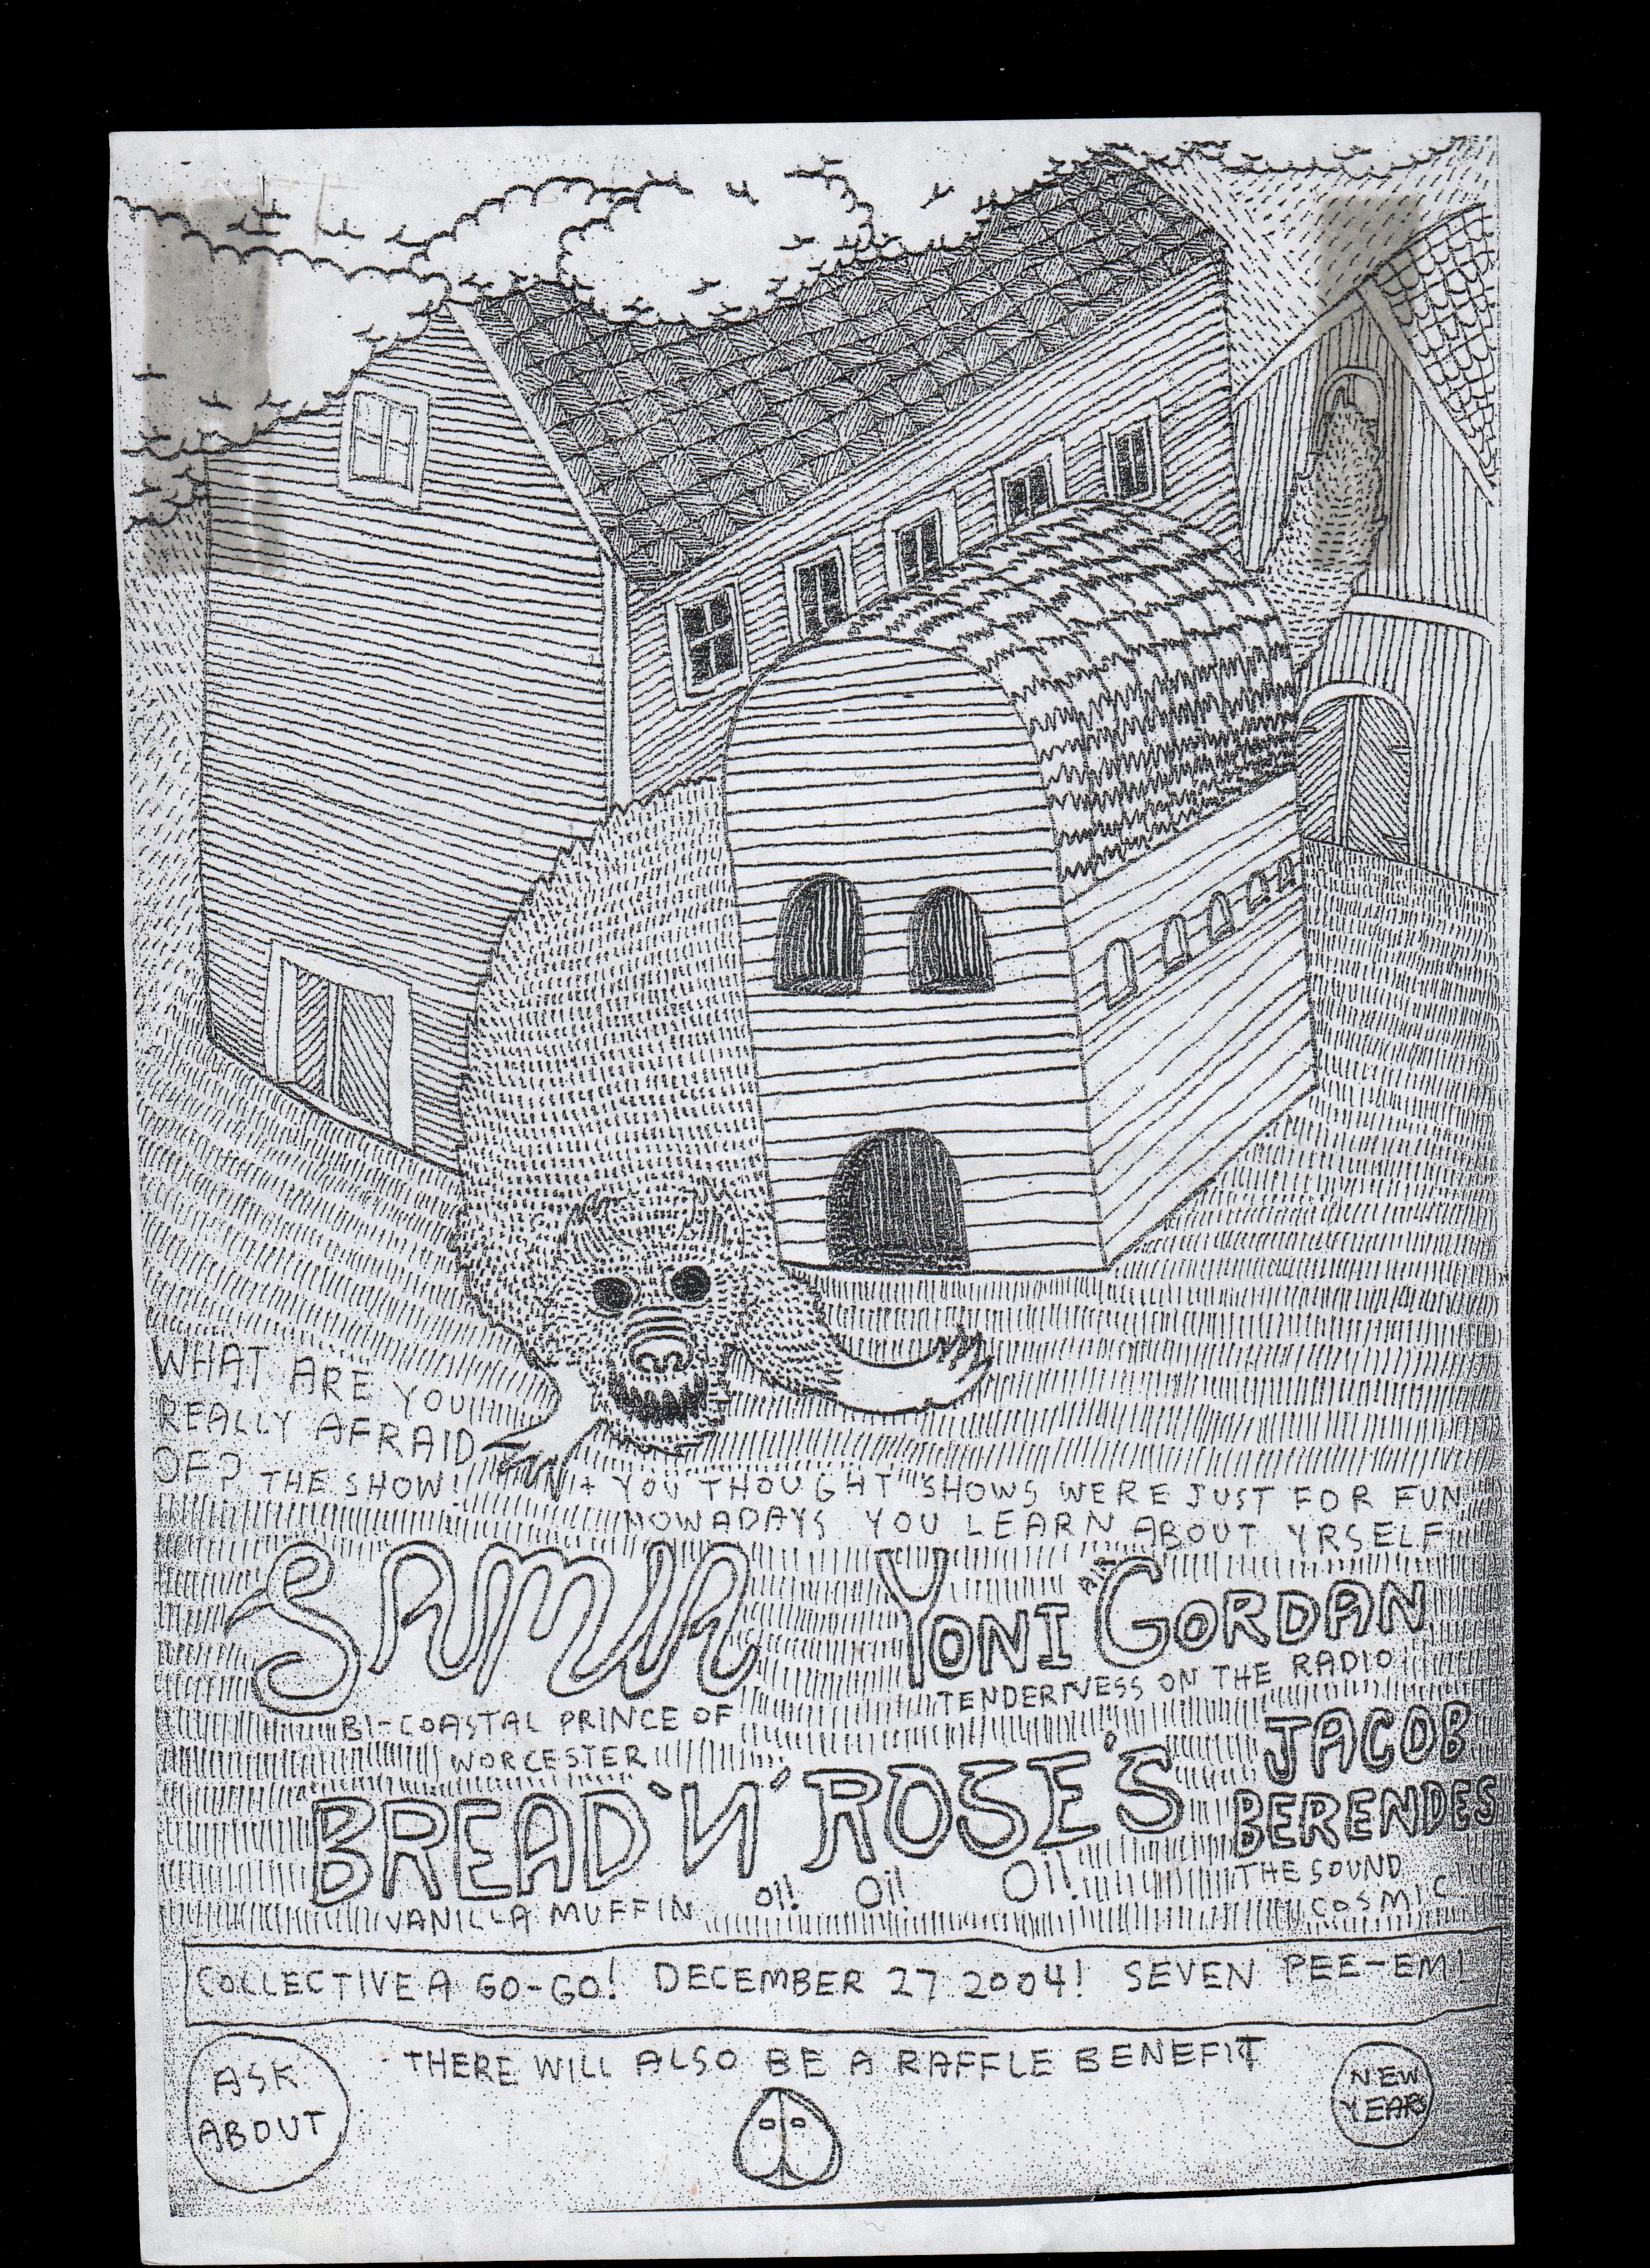 WHAT ARE YOU
REALLY AFRAID
OF? THE SHOW!
+ YOU THOUGHT SHOWS WERE JUST FOR FUN
NOWADAYS YOU LEARN ABOUT YRSELF
SAMIA
BI-COASTAL PRINCE OF
WORCESTER
YONI GORDAN
TENDERNESS ON THE RADIO
BREAD 'N' ROSE'S
VANILLA MUFFIN OI! OI! OI!
JACOB
BERENDES
THE SOUND
COSMIC
COLLECTIVE A GO-GO! DECEMBER 27 2004! SEVEN PEE-EM!
THERE WILL ALSO BE A RAFFLE BENEFIT
ASK
ABOUT
NEW
YEARS